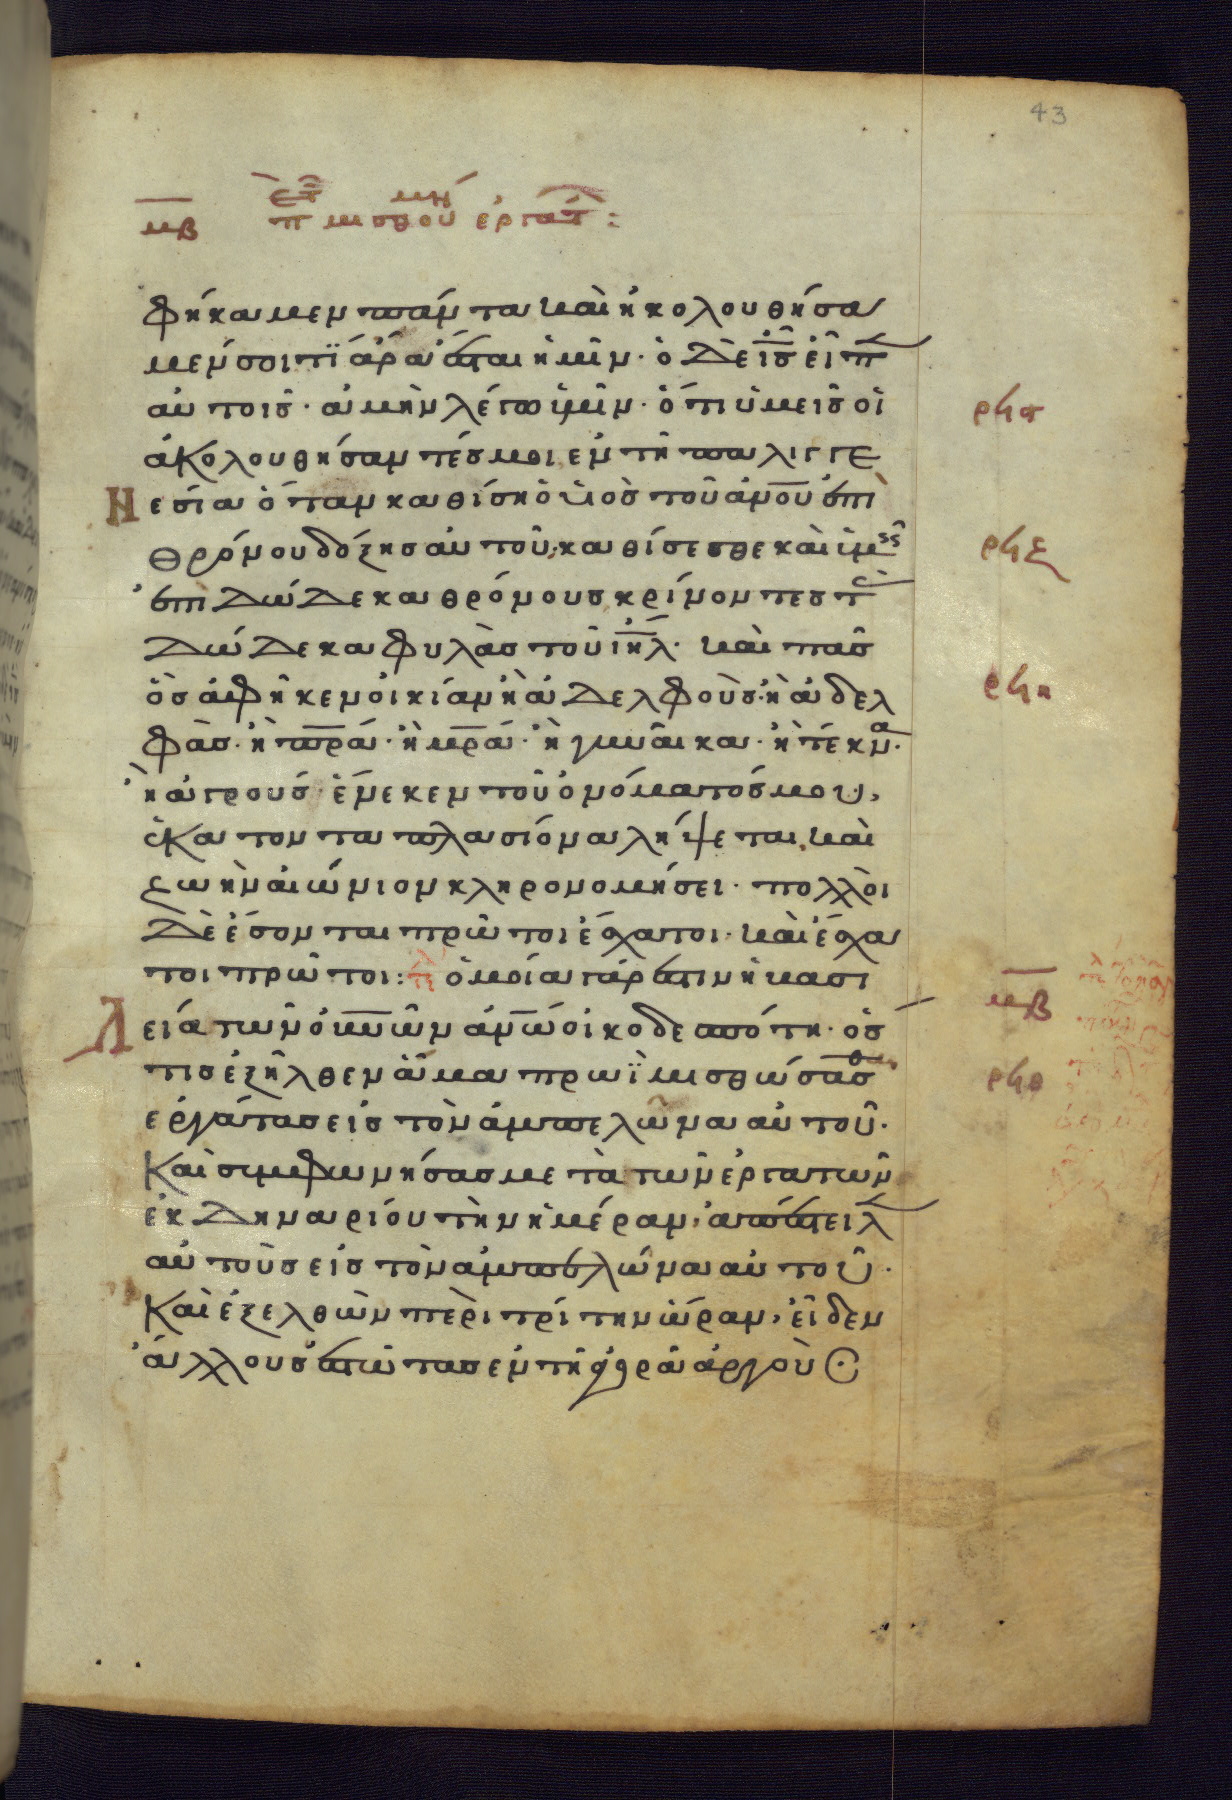 43
μβ π μισθου εργατ:
φήκαμεν πάντα καὶ ἠκολουθήσα
μέν σοι τί ἄρα ἔσται ἡμῖν· ὁ δὲ ις εἶπ
αὐτοῖς· ἀμὴν λέγω ὑμῖν· ὅτι ὑμεῖς οἱ
ἀκολουθήσαντές μοι ἐν τῇ παλιγγε
Ν εσία ὅταν καθίση ὁ υἱὸς τοῦ ἀνου ἐπὶ
θρόνου δόξης αὐτοῦ, καθίσεσθε καὶ ὑμεῖς
ἐπι δώδεκα θρόνους κρίνοντες τ
δώδεκα φυλὰς τοῦ ιηλ· καὶ πᾶς
ὃς ἀφῆκεν οἰκίαν ἢ ἀδελφοὺς· ἢ ἀδελ
φὰς· ἢ πρα· ἢ μρα· ἢ γυναῖκα· ἢ τέκνα·
ἢ ἀγροὺς· ἕνεκεν τοῦ ὀνόματός μου,
ἑκατονταπλασίονα λήψεται, καὶ
ζωὴν αἰώνιον κληρονομήσει· πολλοὶ
δὲ ἔσονται πρῶτοι ἔσχατοι· καὶ ἔσχα
τοι πρῶτοι: ὁμοία γάρ ἐστιν ἡ βασι
Λ εία τῶν οὐνῶν ἀνω οἰκοδεσπότη· ὅσ
τις ἐξῆλθεν ἅμα πρωῒ μισθώσασθ
ἐργάτας εἰς τὸν ἀμπελῶνα αὐτοῦ·
Καὶ συμφωνήσας μετὰ τῶν ἐργατῶν
ἐκ δηναρίου τὴν ἡμέραν, ἀπέστειλ
αὐτοὺς εἰς τὸν ἀμπελῶνα αὐτοῦ·
Καὶ ἐξελθὼν περὶ τρίτην ὥραν, εἶδεν
ἄλλους ἑστῶτας ἐν τῇ ἀγορᾶ ἀργοὺς·
ρϟζ
ρϟη
μβ
ρϟθ